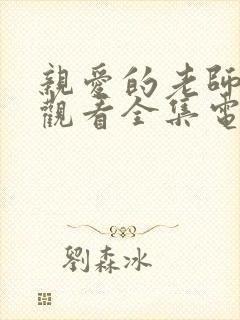 親愛的老師
觀看全集電
劉森冰